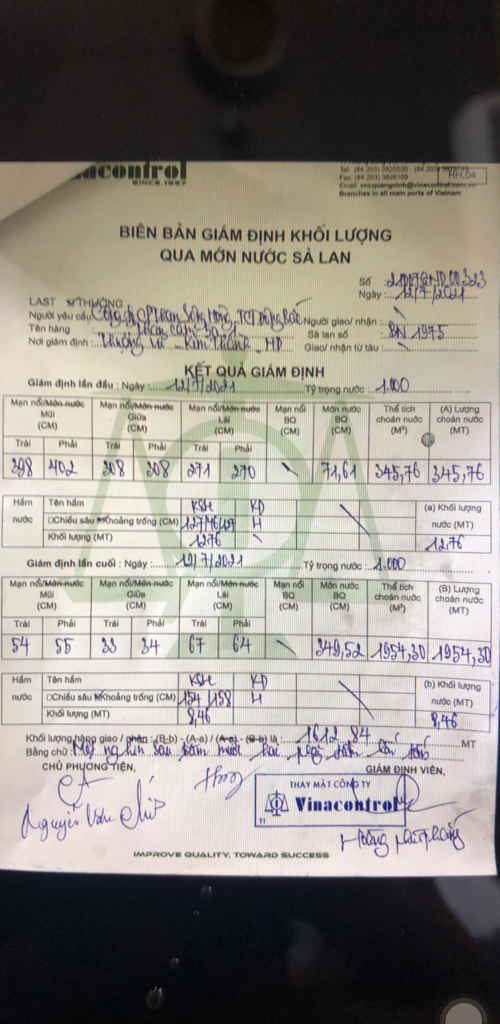 acontrol
SINCE 1957
Tel: (84.203) 3825535 -
Fax: (84.203) 3826169
HH.04
Email: vncquangninh@vinacontrol.com.vn
Branches in all main ports of Vietnam
BIÊN BẢN GIÁM ĐỊNH KHỐI LƯỢNG
QUA MỚN NƯỚC SÀ LAN
Số
Ngày : 12/7/2021
LAST THƯỜNG
Người yêu cầu Người giao/ nhận :
Tên hàng Sà lan số : BN 1975
Nơi giám định : Kim Thành - HD Giao/ nhận từ tàu :
KẾT QUẢ GIÁM ĐỊNH
Giám định lần đầu : Ngày : 12/7/2021 Tỷ trọng nước : 1.000
Mạn nổi/Mớn nước Mũi (CM) Mạn nổi/Mớn nước Giữa (CM) Mạn nổi/Mớn nước Lái (CM) Mạn nổi BQ (CM) Món nước BQ (CM) Thể tích choán nước (M³) (A) Lượng choán nước (MT)
Trái Phải Trái Phải Trái Phải
398 402 308 308 271 270 \ 71,61 345,76 345,76
Hầm nước Tên hầm KSH KD (a) Khối lượng nước (MT)
Chiều sâu Khoảng trống (CM) H
Khối lượng (MT) 12.76 12.76
Giám định lần cuối : Ngày : 12/7/2021 Tỷ trọng nước : 1.000
Mạn nổi/Mớn nước Mũi (CM) Mạn nổi/Mớn nước Giữa (CM) Mạn nổi/Mớn nước Lái (CM) Mạn nổi BQ (CM) Món nước BQ (CM) Thể tích choán nước (M³) (B) Lượng choán nước (MT)
Trái Phải Trái Phải Trái Phải
54 55 33 34 67 64 \ 349,52 1954,30 1954,30
Hầm nước Tên hầm KSH KD (b) Khối lượng nước (MT)
Chiều sâu Khoảng trống (CM) 154/158 H
Khối lượng (MT) 8,46 8,46
Khối lượng hàng giao / nhận : (B-b) - (A-a) / (A-a) - (B-b) là : 1612,84 MT
Bằng chữ : Một nghìn sáu trăm mười hai
CHỦ PHƯƠNG TIỆN, GIÁM ĐỊNH VIÊN,
THAY MẶT CÔNG TY
Vinacontrol
Nguyễn Văn
IMPROVE QUALITY, TOWARD SUCCESS